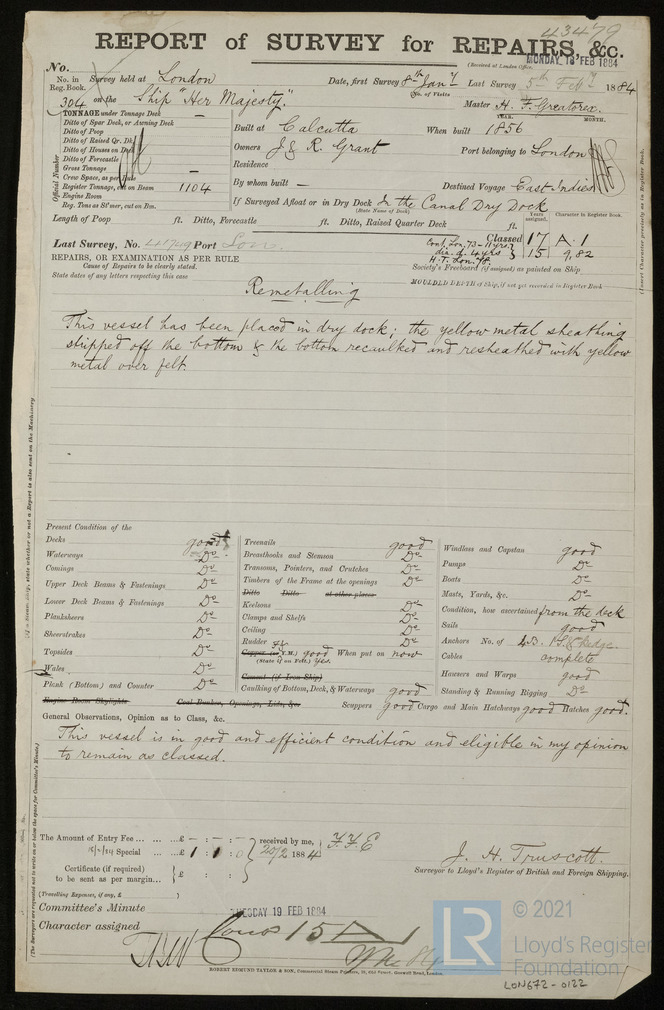 43479
REPORT of SURVEY for REPAIRS, &c.
MONDAY, 18 FEB 1884
(Received at London Office,
No.
No. in Reg. Book. Survey held at London Date, first Survey 8th Jany Last Survey 5th Feby 1884
(No. of Visits
304 on the Ship "Her Majesty." Master H. F. Greatorex.
TONNAGE under Tonnage Deck —
Ditto of Spar Deck, or Awning Deck
Ditto of Poop
Ditto of Raised Qr. Dk.
Ditto of Houses on Deck
Ditto of Forecastle
Gross Tonnage —
Crew Space, as per Rule
Register Tonnage, cut on Beam 1104
Engine Room
Reg. Tons as St'mer, cut on Bm.
Official Number
YEAR. MONTH.
Built at Calcutta When built 1856
Owners J. & R. Grant Port belonging to London
Residence
By whom built — Destined Voyage East Indies
If Surveyed Afloat or in Dry Dock In the Canal Dry Dock
(State Name of Dock)
Length of Poop ft. Ditto, Forecastle ft. Ditto, Raised Quarter Deck ft.
Years assigned. Character in Register Book.
Last Survey, No. 41749 Port Lon. Classed 17 A.1
Cont. Lon. 73 - 11 yrs
15 9,82
H.T. Lon. 78
REPAIRS, OR EXAMINATION AS PER RULE
Cause of Repairs to be clearly stated.
State dates of any letters respecting this case
Society's Freeboard (if assigned) as painted on Ship
MOULDED DEPTH of Ship, if not yet recorded in Register Book
(Insert Character precisely as in Register Book.
Remetalling
This vessel has been placed in dry dock; the yellow metal sheathing
stripped off the bottom & the bottom recaulked and resheathed with yellow
metal over felt.
If a Steam Ship, state whether or not a Report is also sent on the Machinery.
Present Condition of the
Decks good
Waterways Do
Comings Do
Upper Deck Beams & Fastenings Do
Lower Deck Beams & Fastenings Do
Planksheers Do
Sheerstrakes Do
Topsides Do
Wales Do
Plank (Bottom) and Counter Do
Engine Room Skylights Coal Bunker, Openings, Lids, &c.
Treenails good
Breasthooks and Stemson Do
Transoms, Pointers, and Crutches Do
Timbers of the Frame at the openings Do
Ditto Ditto at other places
Keelsons Do
Clamps and Shelfs Do
Ceiling Do
Rudder Do
Copper (or Y.M.) good When put on now
(State if on Felt.) Yes.
Cement (if Iron Ship)
Caulking of Bottom, Deck, & Waterways good
Windlass and Capstan good
Pumps Do
Boats Do
Masts, Yards, &c. Do
Condition, how ascertained from the deck
Sails good
Anchors No. of 4B. 1S. & Kedge.
Cables complete
Hawsers and Warps good
Standing & Running Rigging Do
Scuppers good Cargo and Main Hatchways good Hatches good.
General Observations, Opinion as to Class, &c.
This vessel is in good and efficient condition and eligible in my opinion
to remain as classed.
(The Surveyors are requested not to write on or below the space for Committee's Minute.)
The Amount of Entry Fee ... ... ...£ - : - : -
18/2/84 Special ... ...£ 1 : 1 : 0
received by me,
20/2 1884
Certificate (if required) to be sent as per margin... £ : :
(Travelling Expenses, if any, £ )
J. H. Truscott.
Surveyor to Lloyd's Register of British and Foreign Shipping.
Committee's Minute TUESDAY 19 FEB 1884
Character assigned Cont 15 A 1
ROBERT EDMUND TAYLOR & SON, Commercial Steam Printers, 19, Old Street, Goswell Road, London.
LR
© 2021
Lloyd's Register
Foundation
LON672-0122